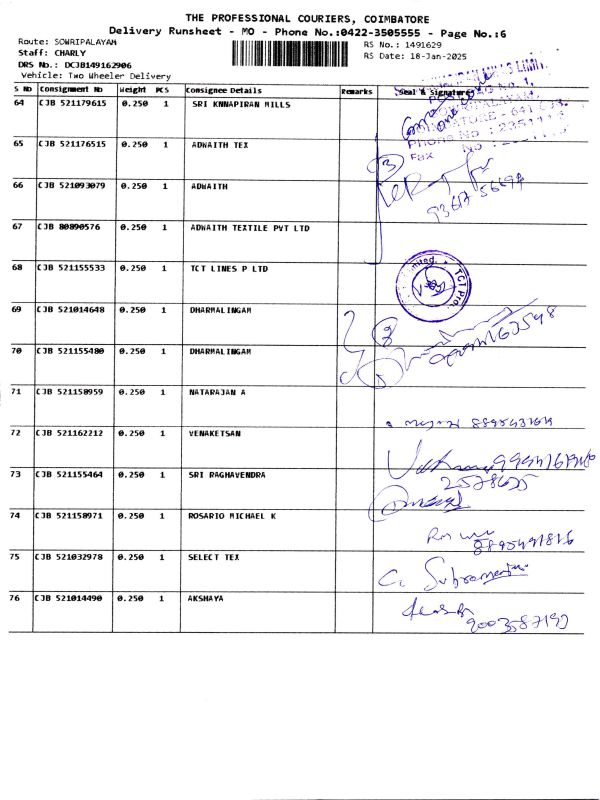 THE PROFESSIONAL COURIERS, COIMBATORE
Delivery Runsheet - MO - Phone No.:0422-3505555 - Page No.:6
Route: SOWRIPALAYAM
RS No.: 1491629
Staff: CHARLY
RS Date: 18-Jan-2025
DRS No.: DCJB149162906
Vehicle: Two Wheeler Delivery
S No Consignment No Weight PCS Consignee Details Remarks Seal & Signature
64 CJB 521179615 0.250 1 SRI KNNAPIRAN MILLS
Phone No : 235111
Fax No :
65 CJB 521176515 0.250 1 ADWAITH TEX
3
66 CJB 521093079 0.250 1 ADWAITH
93617 56697
67 CJB 80890576 0.250 1 ADWAITH TEXTILE PVT LTD
68 CJB 521155533 0.250 1 TCT LINES P LTD
TCT Pro Limited.
69 CJB 521014648 0.250 1 DHARMALINGAM
70 CJB 521155480 0.250 1 DHARMALINGAM
71 CJB 521158959 0.250 1 NATARAJAN A
72 CJB 521162212 0.250 1 VENAKETSAN
73 CJB 521155464 0.250 1 SRI RAGHAVENDRA
2578625
74 CJB 521158971 0.250 1 ROSARIO MICHAEL K
8895491816
75 CJB 521032978 0.250 1 SELECT TEX
76 CJB 521014490 0.250 1 AKSHAYA